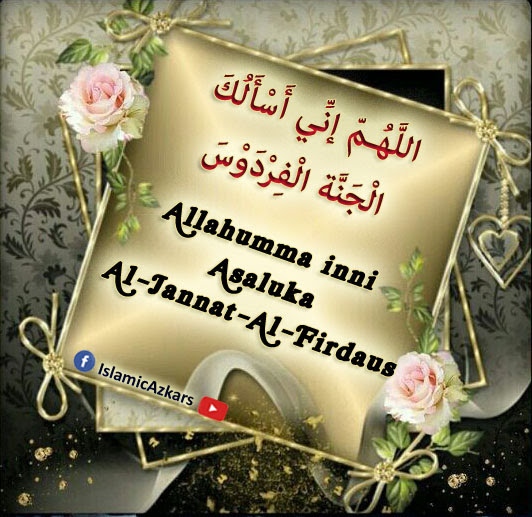 اللَّهُمّ إِنِّي أَسْأَلُكَ
الْجَنَّة الْفِرْدَوْسَ
Allahumma inni
Asaluka
Al-Jannat-Al-Firdaus
IslamicAzkars